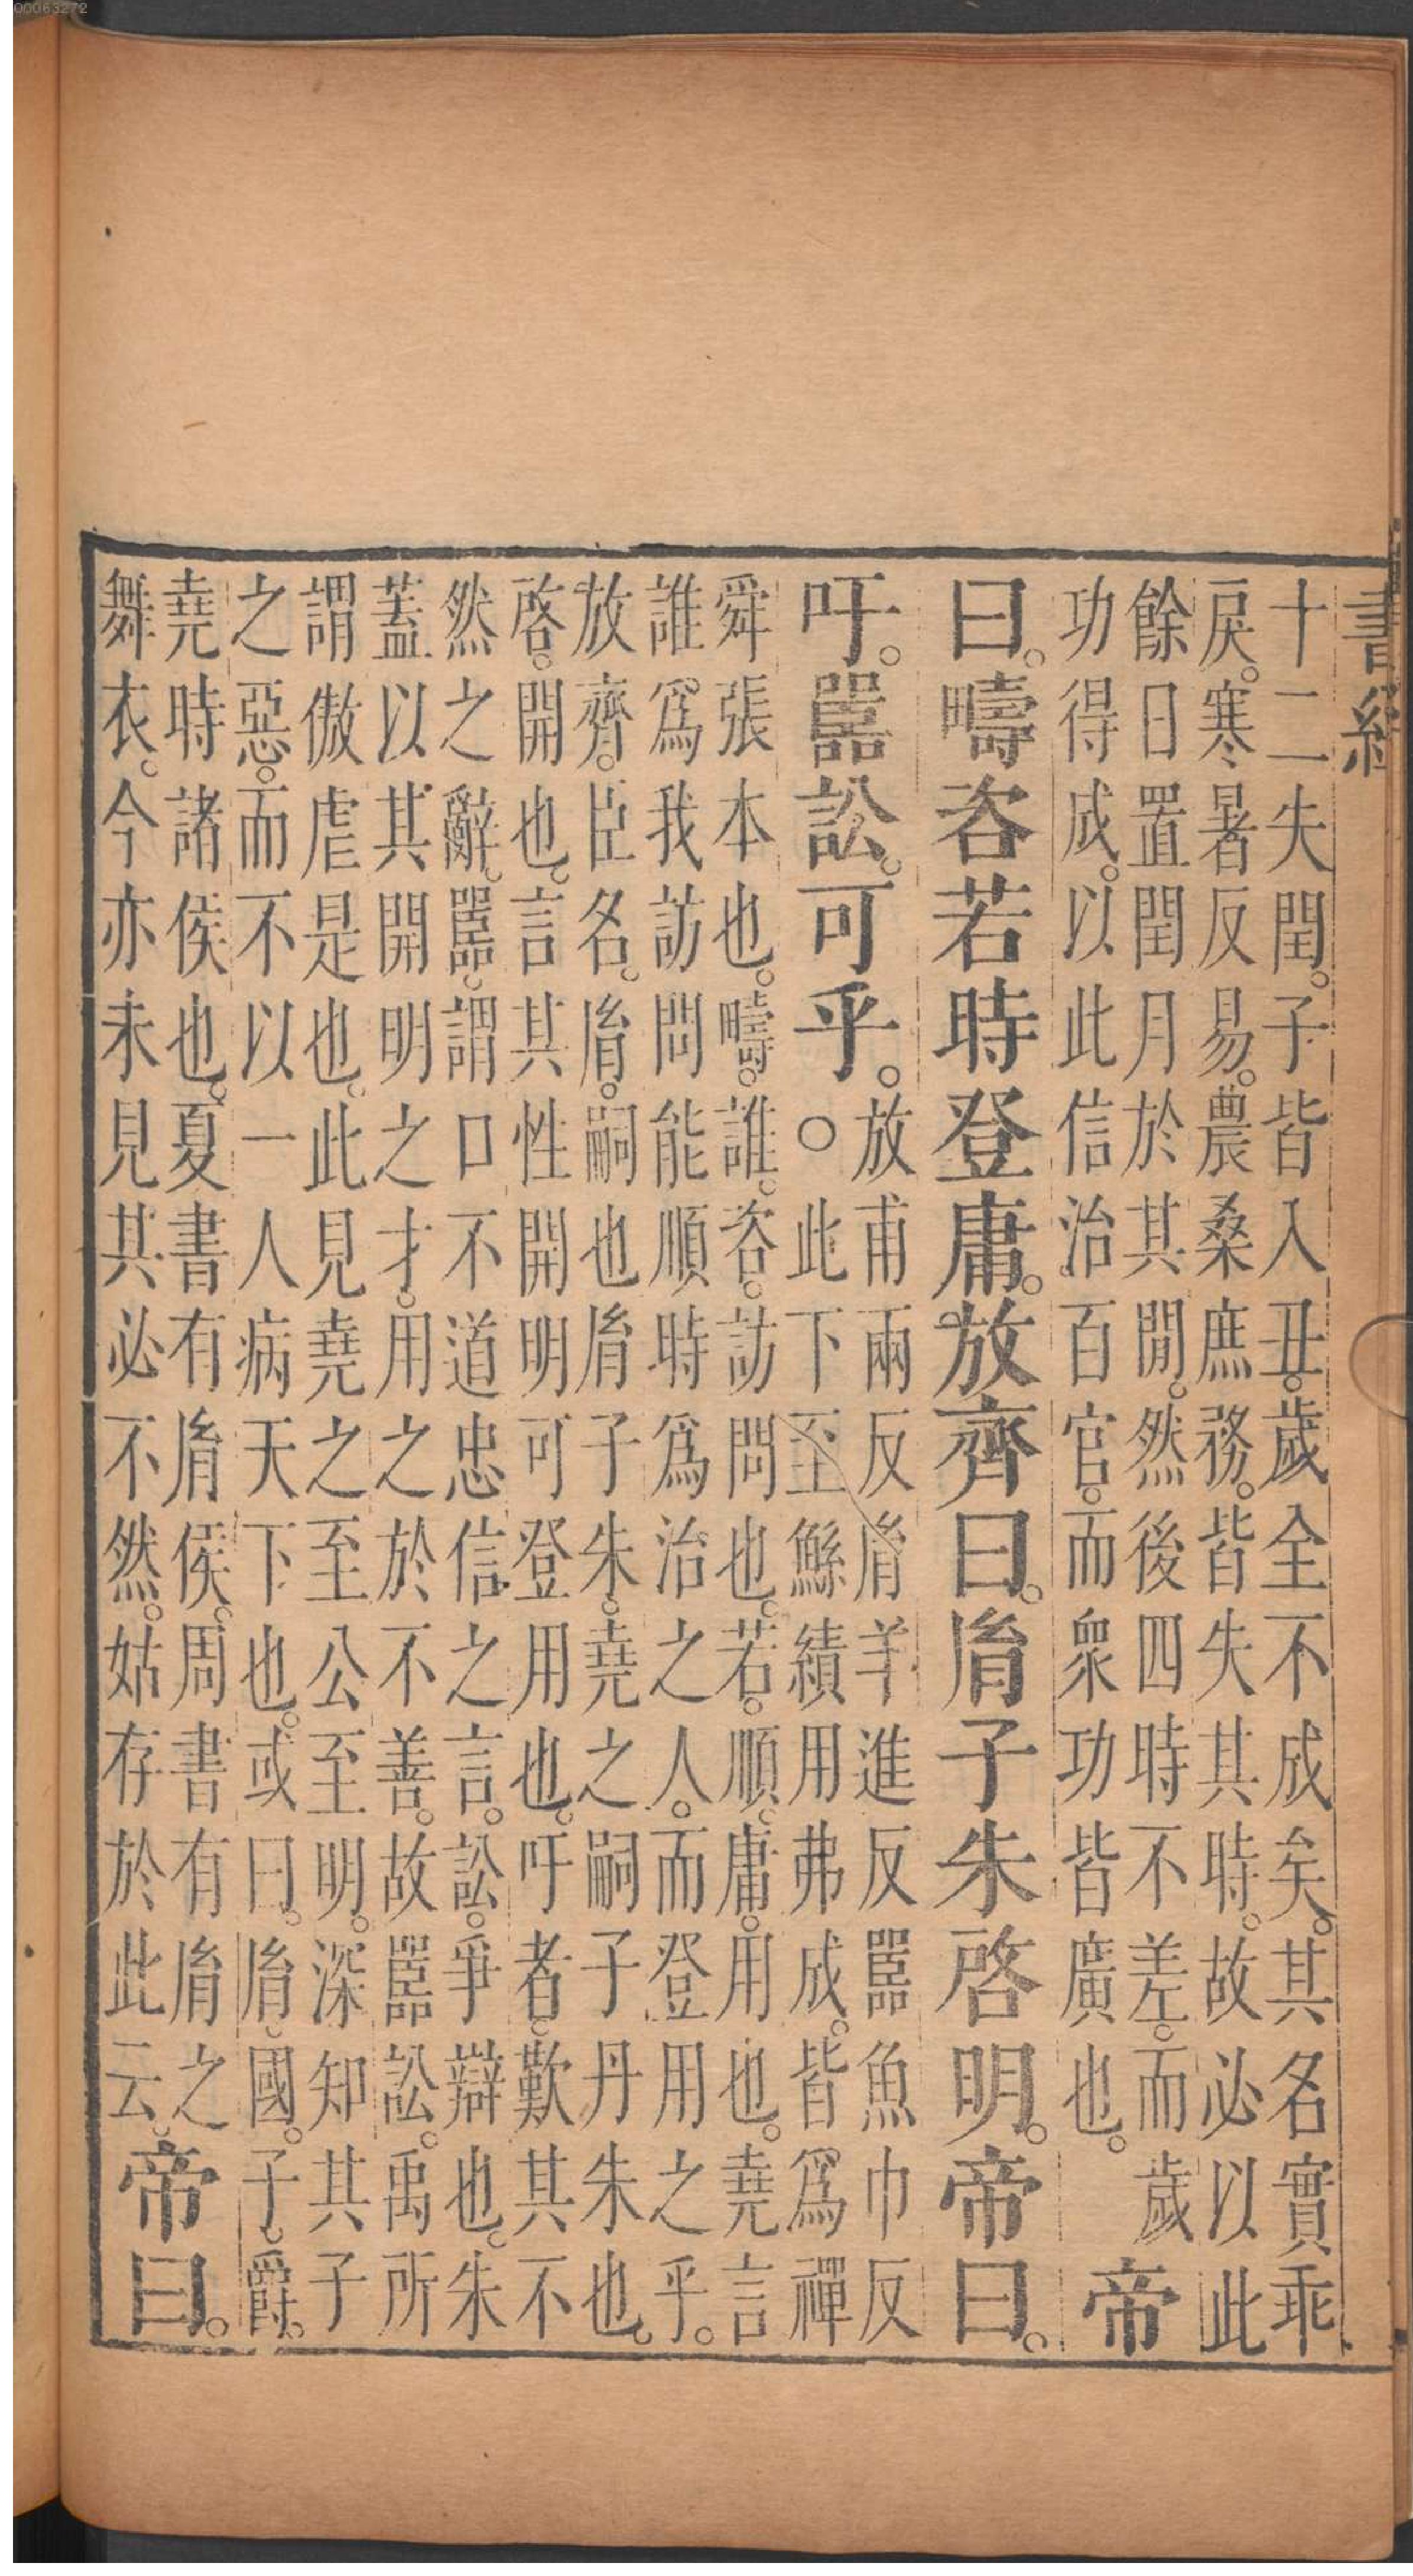 00063272
書經
十二失閏。子皆入丑。歲全不成矣。其名實乖
戾。寒暑反易。農桑庶務。皆失其時。故必以此
餘日置閏月於其閒。然後四時不差。而歲
功得成。以此信治百官。而衆功皆廣也。帝
曰。疇咨若時登庸。放齊曰。胤子朱啓明。帝曰。
吁。嚚訟。可乎。放甫兩反胤羊進反嚚魚巾反
○此下至鯀績用弗成。皆爲禪
舜張本也。疇。誰。咨。訪問也。若。順。庸。用也。堯言
誰爲我訪問能順時爲治之人。而登用之乎。
放齊。臣名。胤。嗣也胤子朱。堯之嗣子丹朱也。
啓。開也。言其性開明可登用也。吁者。歎其不
然之辭。嚚。謂口不道忠信之言。訟。爭辯也。朱
蓋以其開明之才。用之於不善。故嚚訟。禹所
謂傲虐是也。此見堯之至公至明。深知其子
之惡。而不以一人病天下也。或曰。胤。國。子。爵。
堯時諸侯也。夏書有胤侯。周書有胤之
舞衣。今亦未見其必不然。姑存於此云。帝曰。